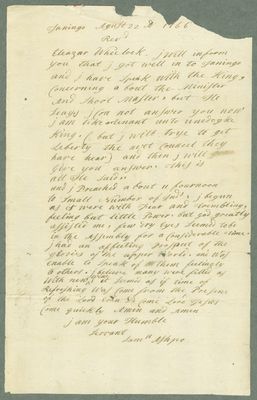 Jeningo Agust 22 d 1766
Revd
Eleazar Wheelock. I will inform
you that I got well in to Jeningo
and I have Speak with the King,
Concerning a bout the Minister
And Short Master, but He
Seays I Can not answer you now
I am like
King. (but I will trye to get
Liberty the next Councel they
have hear) and then I will
Give you answer. this is
all He Said.
and I Preached a bout 11 fournoon
to Small Number of Ind.s, I begun
as it were with Fear and Trembling,
feeling but Little Power. but god greatly
assisted me, few dry Eyes Seemed to be
in the Assembly for a Considerable time
I had an affecting Prospect of the
glories of the upper World. and Was
enable to Speak of them feelingly
to others. I believe many were filled
With new it Seems as if time of
Refreshing Was Come from the Presence
of the Lord Even So Come Lord Jesus
Come quickly Amen and Amen
I am your Humble
Servant
Sam.ll Ashpo